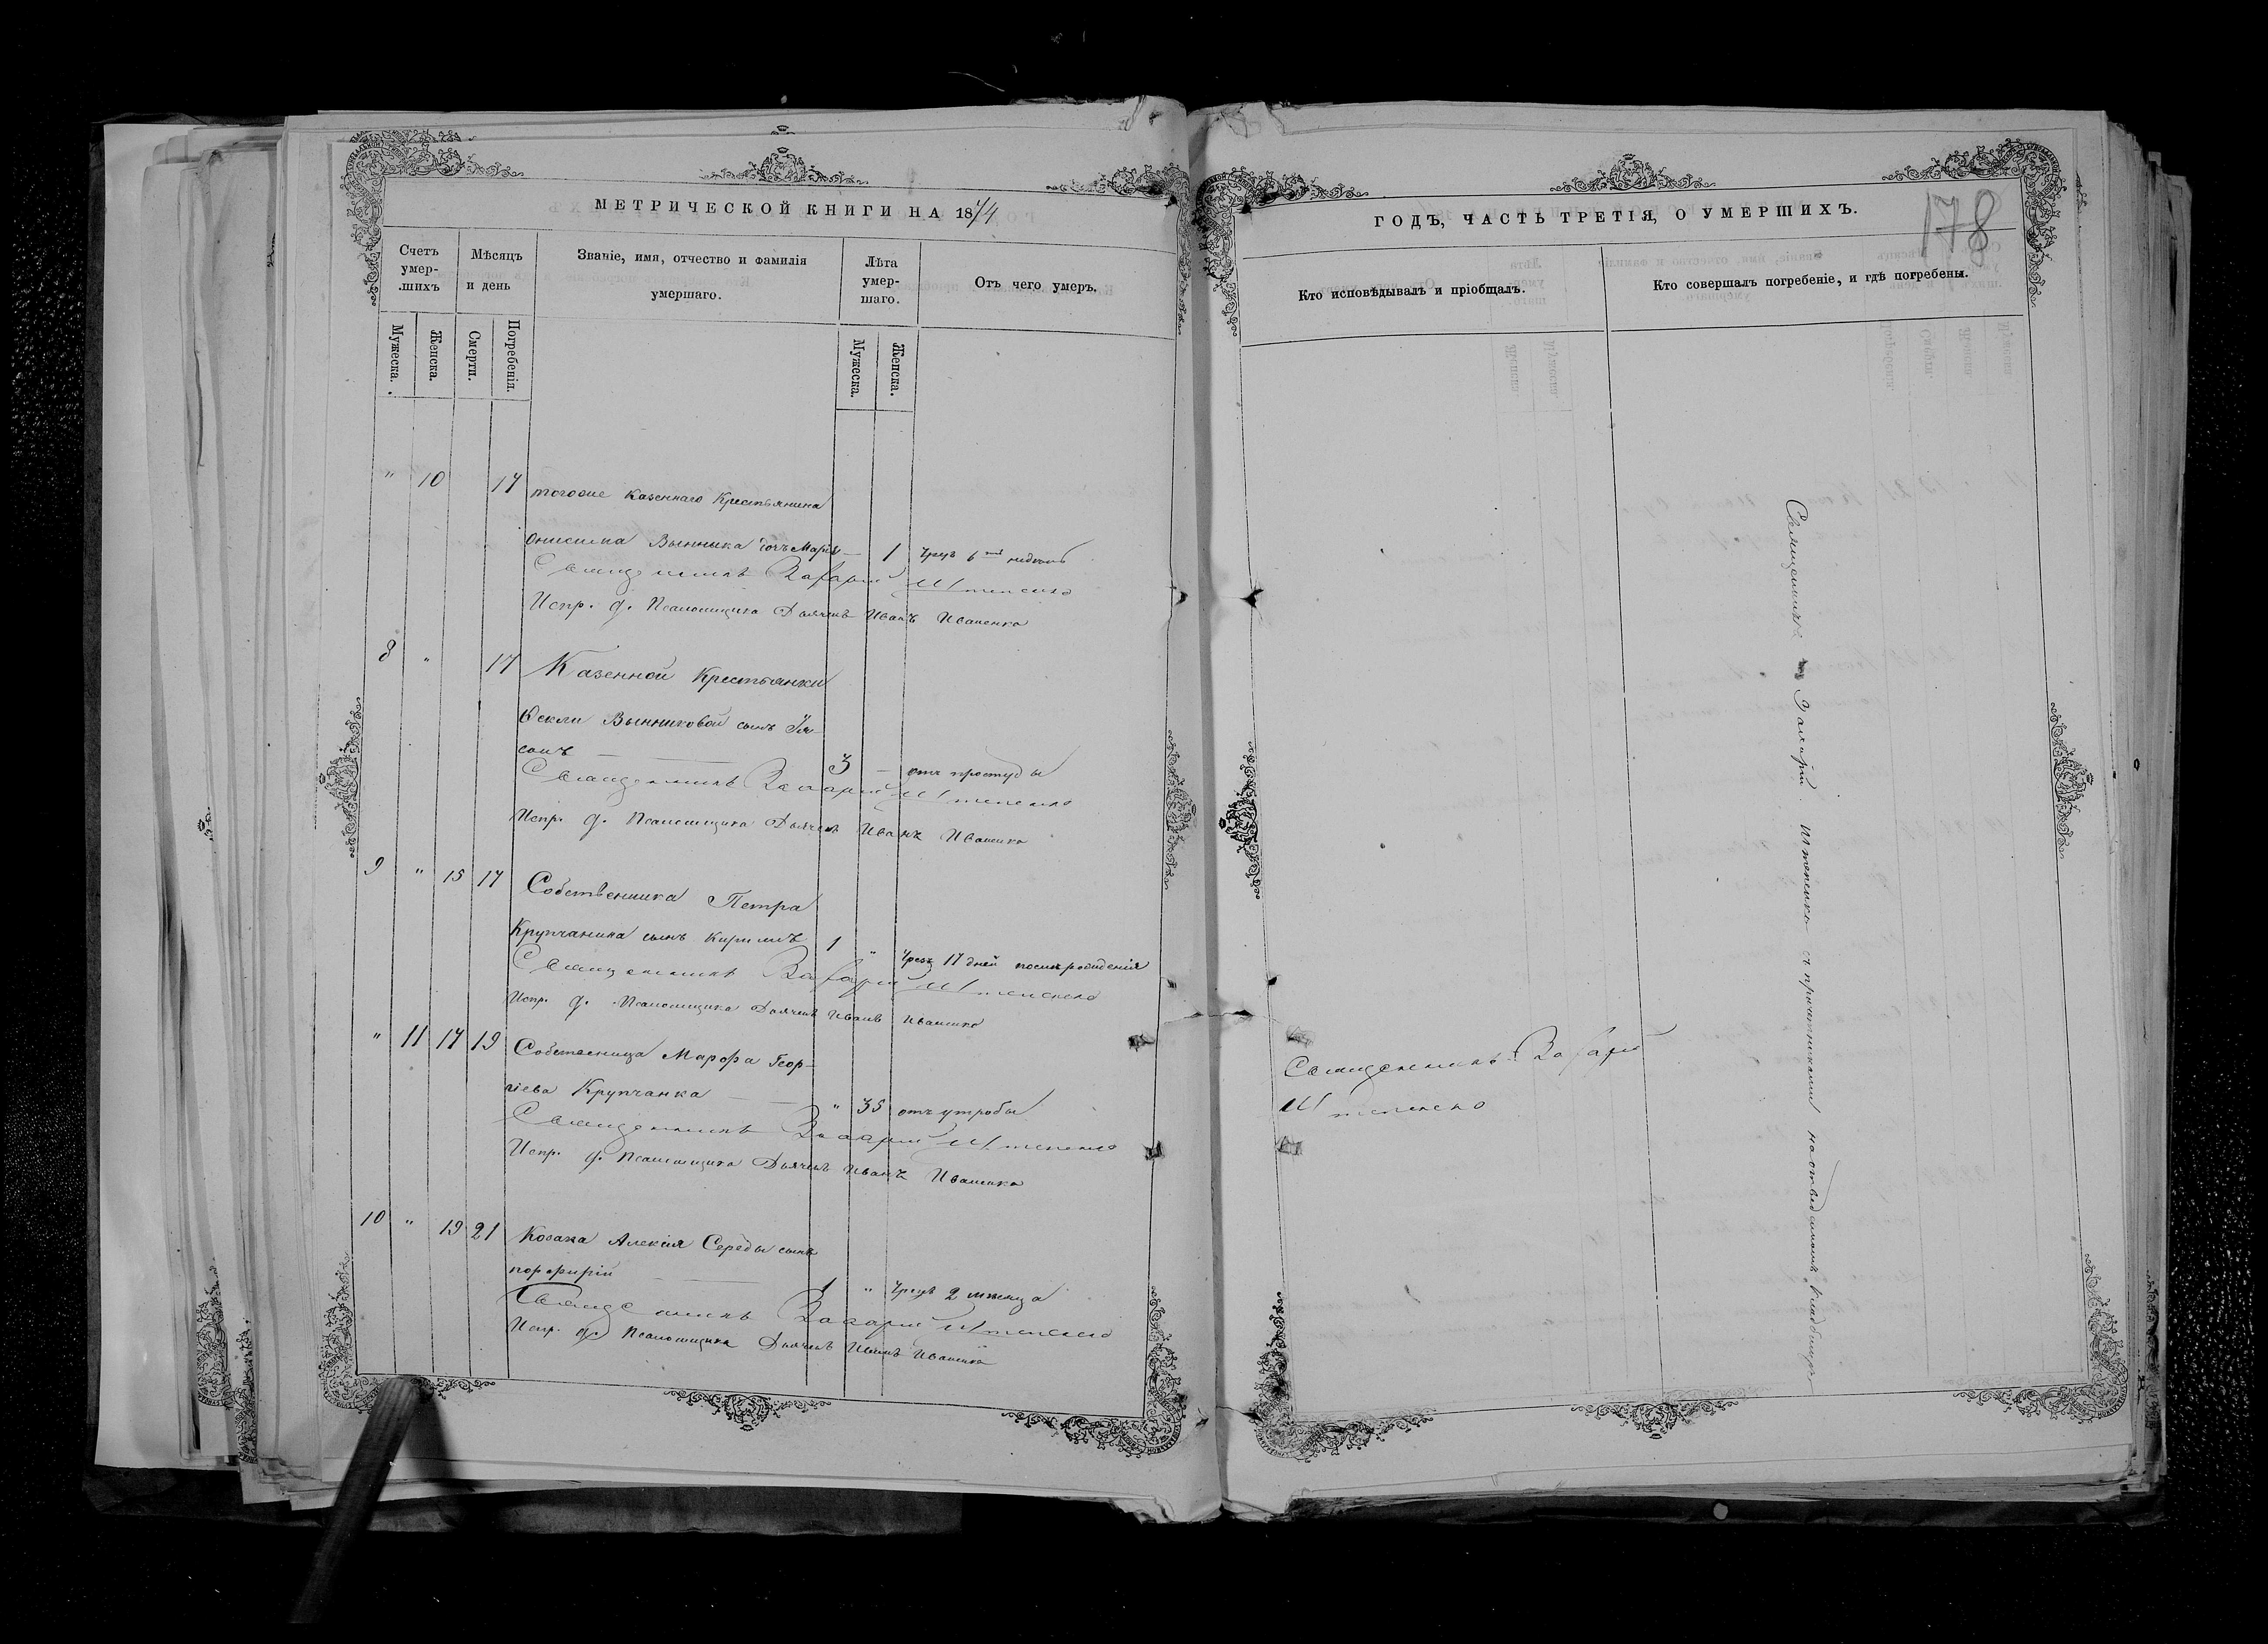 МЕТРИЧЕСКОЙ КНИГИ НА 1874
Счетъ умер-шихъ
Мѣсяцъ и день
Званіе, имя, отчество и фамилія умершаго.
Лѣта умер-шаго.
Отъ чего умеръ.
Мужеска.
Женска.
Смерти.
Погребенія.
Мужеска.
Женска.
" 10 17 тогоже Казеннаго Крестьянина
Онисима Вынника дочь Марія — 1 Чрезъ 6 недѣль
Священникъ Захарій Штепенко
Испр. д. Псаломщика Дьячекъ Иванъ Иваненко
8 " 17 Казенной Крестьянки
Ѳекли Вынниковой сынъ Іа-
сонъ — 3 — отъ простуды
Священникъ Захарій Штепенко
Испр. д. Псаломщика Дьячекъ Иванъ Иваненко
9 " 15 17 Собственника Петра
Крупчаника сынъ Кирилъ 1 " Чрезъ 17 дней послѣ рожденія
Священникъ Захарій Штепенко
Испр. д. Псаломщика Дьячекъ Иванъ Иваненко
" 11 17 19 Собственица Марфа Геор-
гіева Крупчанка — " 35 отъ утробы
Священникъ Захарій Штепенко
Испр. д. Псаломщика Дьячекъ Иванъ Иваненко
10 " 19 21 Козака Алексія Середы сынъ
порфирій — 1 " Чрезъ 2 мѣсяца
Священникъ Захарій Штепенко
Испр. д. Псаломщика Дьячекъ Иванъ Иваненко
178
ГОДЪ, ЧАСТЬ ТРЕТІЯ, О УМЕРШИХЪ.
Кто исповѣдывалъ и пріобщалъ.
Кто совершалъ погребеніе, и гдѣ погребены.
Священникъ Захарій
Штепенко
Священникъ Захарій Штепенко съ причетниками на отведенномъ кладбищѣ